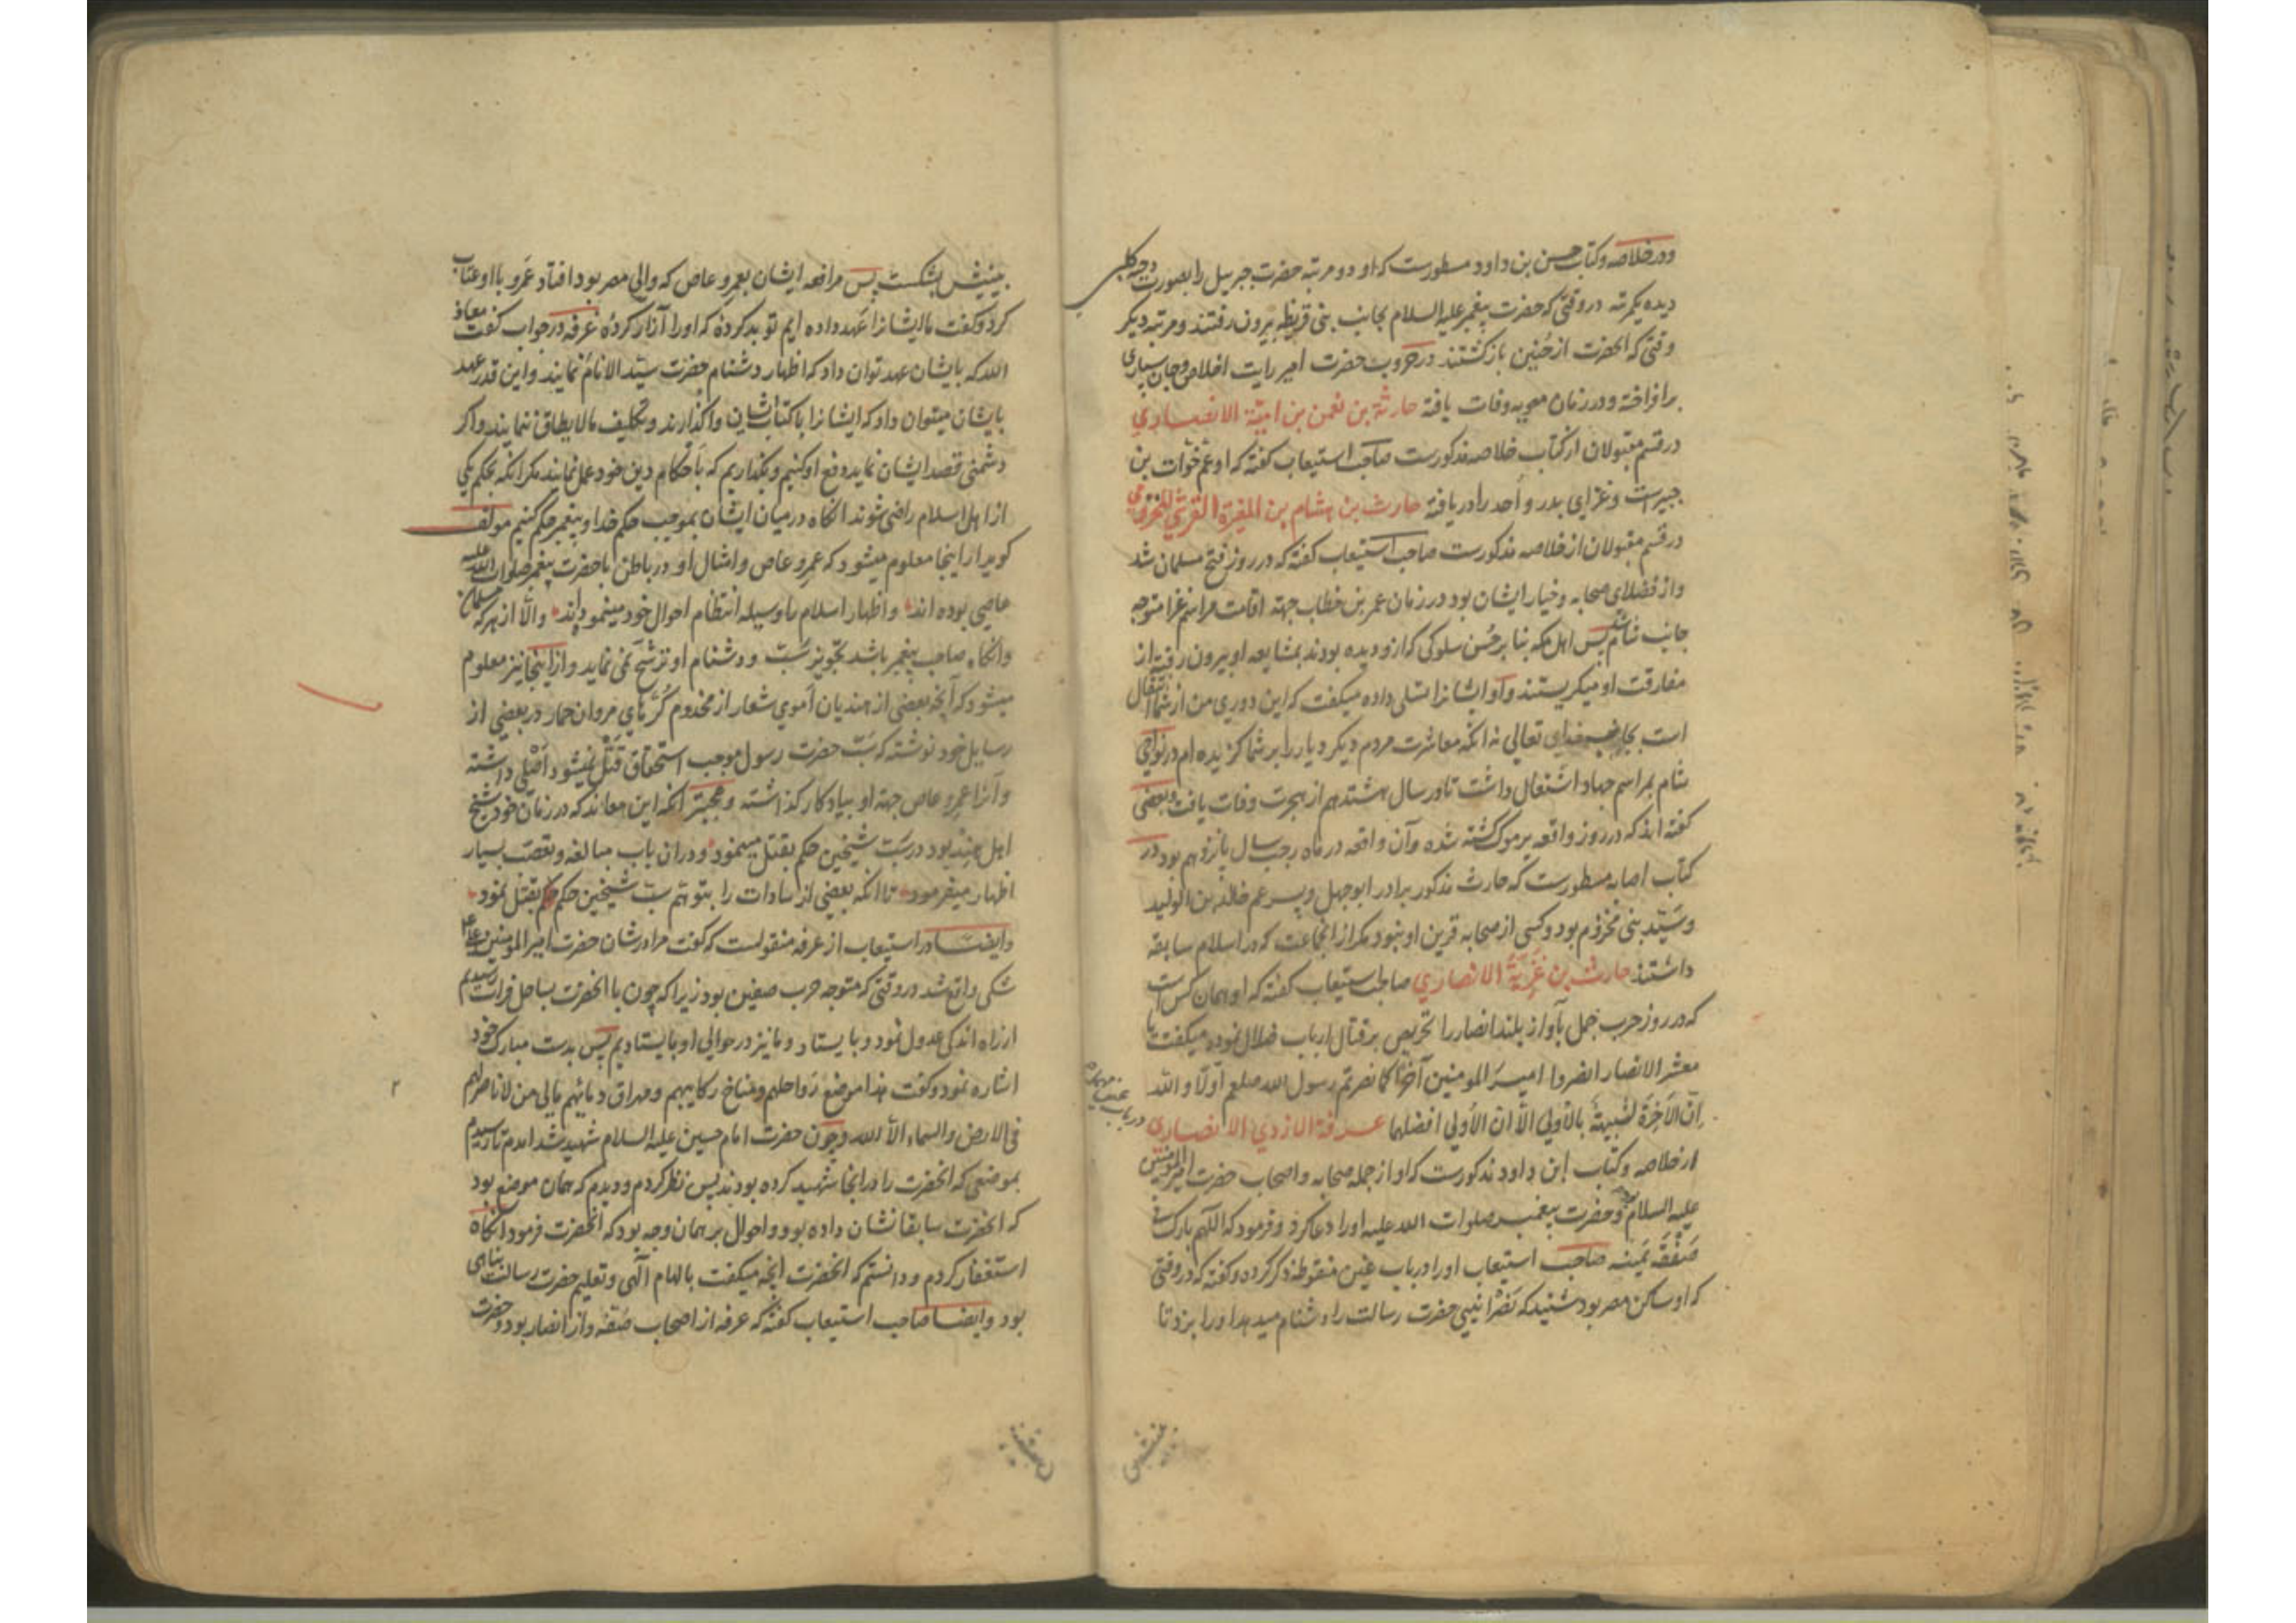 ودر خلاصه وکتاب حسن بن داود مسطورست که او دو مرتبه حضرت جبریل را بصورت دحیه کلبی
دیده یکمرتبه در وقتی که حضرت پیغمبر علیه السلام بجانب بنی قریظه بیرون رفتند ومرتبه دیکر
وقتی که آنحضرت از حنین بازکشتند در حروب حضرت امیر رایت اخلاص وجان سپاری
برافراخته ودر زمان معویه وفات یافته حارثة بن نعمن بن امیة الانصاری
در قسم مقبولان از کتاب خلاصه مذکورست صاحب استیعاب کفته که او عم خوات بن
جبیرست وغزای بدر و اُحد را دریافته حارث بن هشام بن المغیرة القرشی المخزومی
در قسم مقبولان از خلاصه مذکورست صاحب استیعاب کفته که در روز فتح مسلمان شد
واز فضلای صحابه وخیار ایشان بود در زمان عمر بن خطاب جهة اقامت مراسم غزا متوجه
جانب شام شد پس اهل مکه بنا بر حُسن سلوکی که ازو دیده بودند بمشایعه او بیرون رفته از
مفارقت او میکریستند واو ایشانرا تسلی داده میکفت که این دوری من از شما انتقال
است بجانب خدای تعالی نه آنکه معاشرت مردم دیکر دیار را بر شما کزیده ام در نواحی
شام بمراسم جهاد اشتغال داشت تا در سال هشتدهم از هجرت وفات یافت وبعضی
کفته اند که در روز واقعه یرموک کشته شده وآن واقعه در ماه رجب سال پانزدهم بود در
کتاب اصابه مسطورست که حارث مذکور برادر ابوجهل وپسر عم خالد بن الولید
وسَیّد بنی مخزوم بود وکسی از صحابه قرین او نبود مکر از انجماعت که در اسلام سابقه
داشتند حارث بن غَزِیَّة الانصاری صاحب استیعاب کفته که او همان کس است
که در روز حرب جمل بآواز بلند انصار را تحریص بر قتال ارباب ضلال نموده میکفت یا
معشر الانصار انصروا امیرَ المومنین آخرًا کما نصرتم رسول الله صلعم اولًا والله
اِنّ الاَخِرَةَ لشبیهةٌ بالاُولی الّا ان الاُولی افضلها عرفة الازدی الانصاری
در باب
از خلاصه وکتاب ابن داود مذکورست که او از جمله صحابه واصحاب حضرت امیر المومنین
علیه السلام بود وحضرت پیغمبر صلوات الله علیه اورا دعا کرد وفرمود که اللهم بارک فی
صَفْقَة یَمینه صاحب استیعاب اورا در باب غین منقوطه ذکر کرده وکفته که در وقتی
که او ساکن مصر بود شنید که نَصْرانیی حضرت رسالت را دشنام میدهد اورا بزد تا
بینیش بشکست پس مرافعه ایشان بعمرو عاص که والی مصر بود افتاد عَمرو با او عتاب
کرد وکفت ما ایشانرا عَهد داده ایم تو بد کردهٔ که اورا آزار کردهٔ غرفه در جواب کفت معاذ
الله که بایشان عهد توان داد که اظهار دشنام حضرت سیّد الانام نمایند واین قدر عهد
بایشان میتوان داد که ایشانرا با کتاب ایشان واکذارند وتکلیف مالایطاق ننمایند واکر
دشمنی قصد ایشان نماید دفع او کنیم وبکذاریم که باَحکام دین خود عمل نمایند مکر آنکه بحکم یکی
از اهل اسلام راضی شوند آنکاه در میان ایشان بموجب حکم خدا وپیغمبر حکم کنیم مولف
کوید از اینجا معلوم میشود که عمرو عاص وامثال او در باطن با حضرت پیغمبر صلوات الله علیه
عاصی بوده اند واظهار اسلام را وسیله انتظام احوال خود مینموده اند والّا از هر که مسلمان
وآنکاه صاحب پیغمبر باشد تجویز سَبّ ودشنام او ترشّح نمی نماید واز اینجا نیز معلوم
میشود که آنچه بعضی از هندیان اُموی شعار از مخدوم کُرّهای مروان حمار در بعضی از
رسایل خود نوشته که سَبّ حضرت رسول موجب استحقاق قَتْل نمیشود اَصْلی داشته
وآنرا عمرو عاص جهة او بیادکار کذاشته وعجبتر آنکه این معاند که در زمان خود شیخ
اهل هند بود در سَبّ شیخین حکم بقتل مینمود ودر ان باب مبالغه وتعصّب بسیار
اظهار میفرمود تا آنکه بعضی از سادات را بتوهّم سبّ شیخین حکم بقتل نمود
وایضا در استیعاب از عرفه منقولست که کفت مرا در شان حضرت امیر المومنین علی ع
شکی واقع شد در وقتی که متوجه حرب صفین بود زیرا که چون با آنحضرت بساحل فرات رسیدیم
از راه اندکی عدول نمود وبایستاد وما نیز در حوالی او بایستادیم پس بدست مبارک خود
اشاره نمود وکفت هذا موضع رواحلهم ومناخ رکابیهم ومهراق دمائهم بابی من لا ناصر لهم
فی الارض والسماء الّا الله وچون حضرت امام حسین علیه السلام شهید شد آمدم تا رسیدم
بموضعی که آنحضرت را در انجا شهید کرده بودند پس نظر کردم ودیدم که همان موضع بود
که آنحضرت سابقا نشان داده بود واحوال بر همان وجه بود که آنحضرت فرمود آنکاه
استغفار کردم ودانستم که آنحضرت آنچه میکفت بالهام الهی وتعلیم حضرت رسالت پناهی
بود وایضا صاحب استیعاب کفته که عرفه از اصحاب صُفّه واز انصار بود وحضرت
بینیش